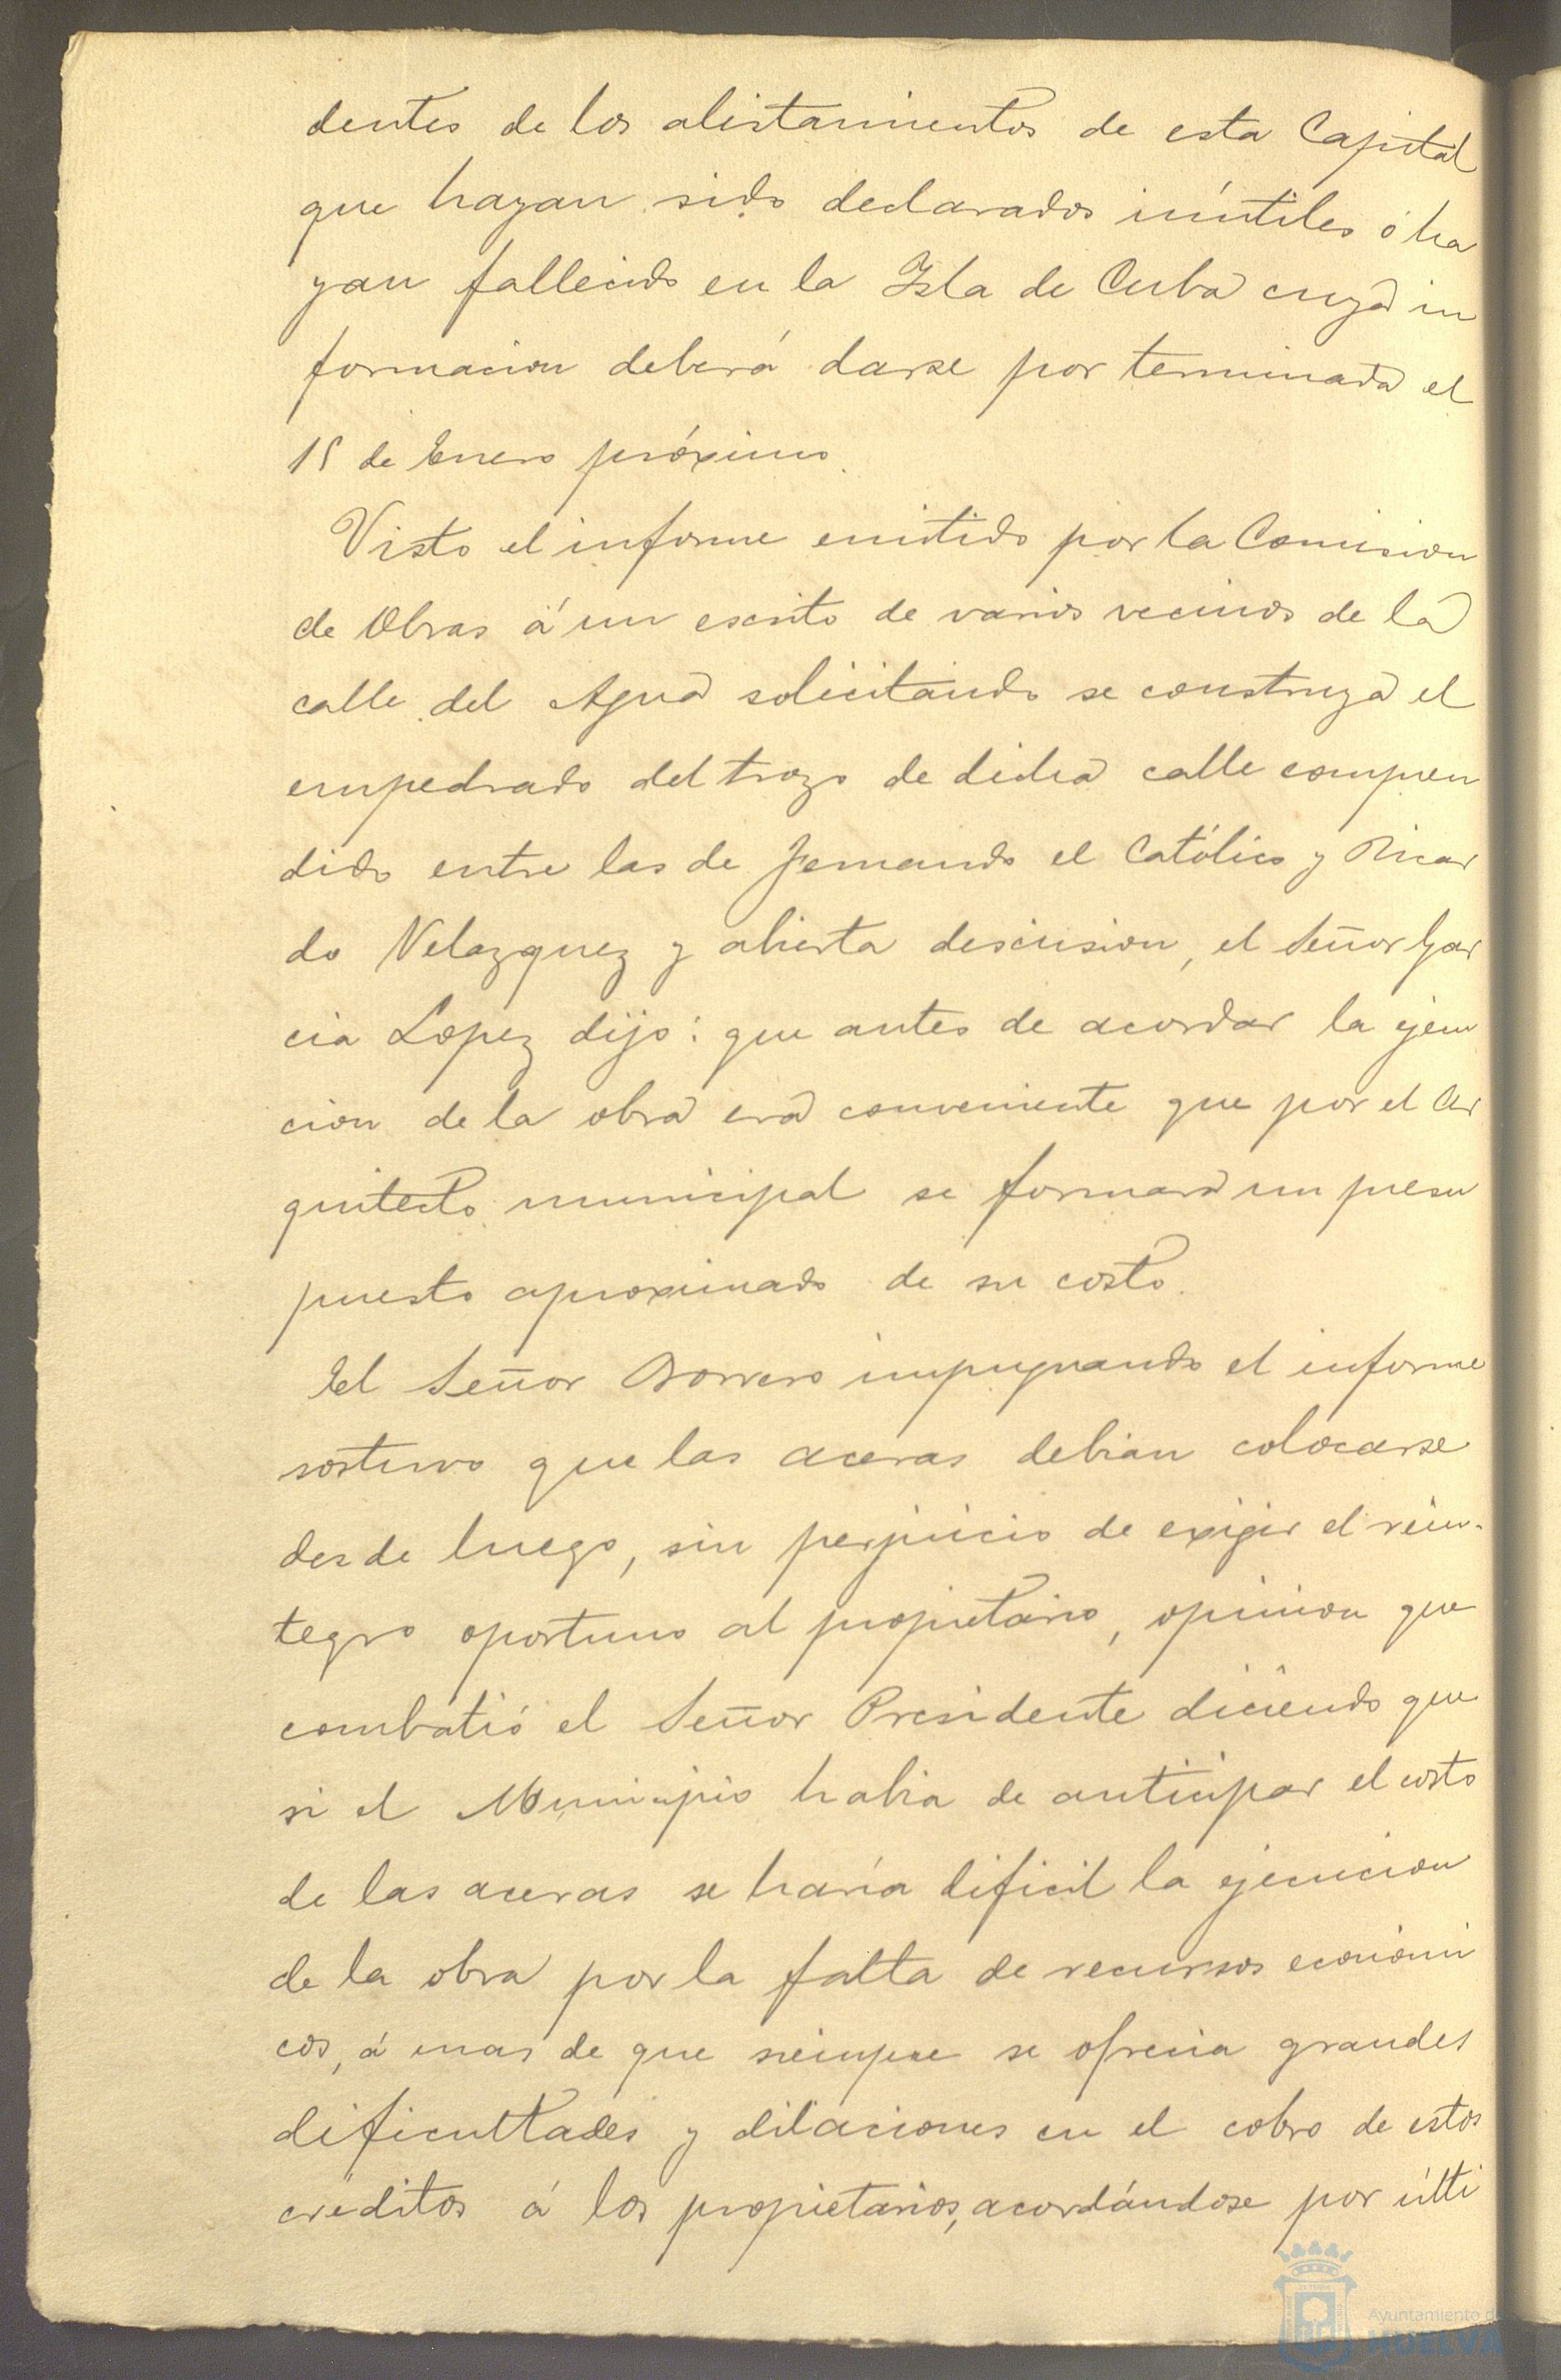 dentes de los alistamientos de esta Capital
que hayan sido declarados inútiles ó ha
yan fallecido en la Isla de Cuba cuya in
formacion deberá darse por terminada el
15 de Enero próximo.
Visto el informe emitido por la Comision
de Obras á un escrito de varios vecinos de la
calle del Agua solicitando se construya el
empedrado del trozo de dicha calle compren
dido entre las de Fernando el Católico y Ricar
do Velazquez y abierta descusion, el Señor Gar
cia Lopez dijo: que antes de acordar la ejecu
cion de la obra era conveniente que por el Ar
quitecto municipal se formara un presu
puesto aproximado de su costo.
El Señor Borrero impugnando el informe
sostuvo que las aceras debian colocarse
desde luego, sin perjuicio de exigir el rein-
tegro oportuno al propietario, opinion que
combatió el Señor Presidente diciendo que
si el Municipio habia de anticipar el costo
de las aceras se haría dificil la ejecucion
de la obra por la falta de recursos económi
cos, á mas de que siempre se ofrecia grandes
dificultades y dilaciones en el cobro de estos
creditos á los propietarios, acordándose por últi
Ayuntamiento de
HUELVA